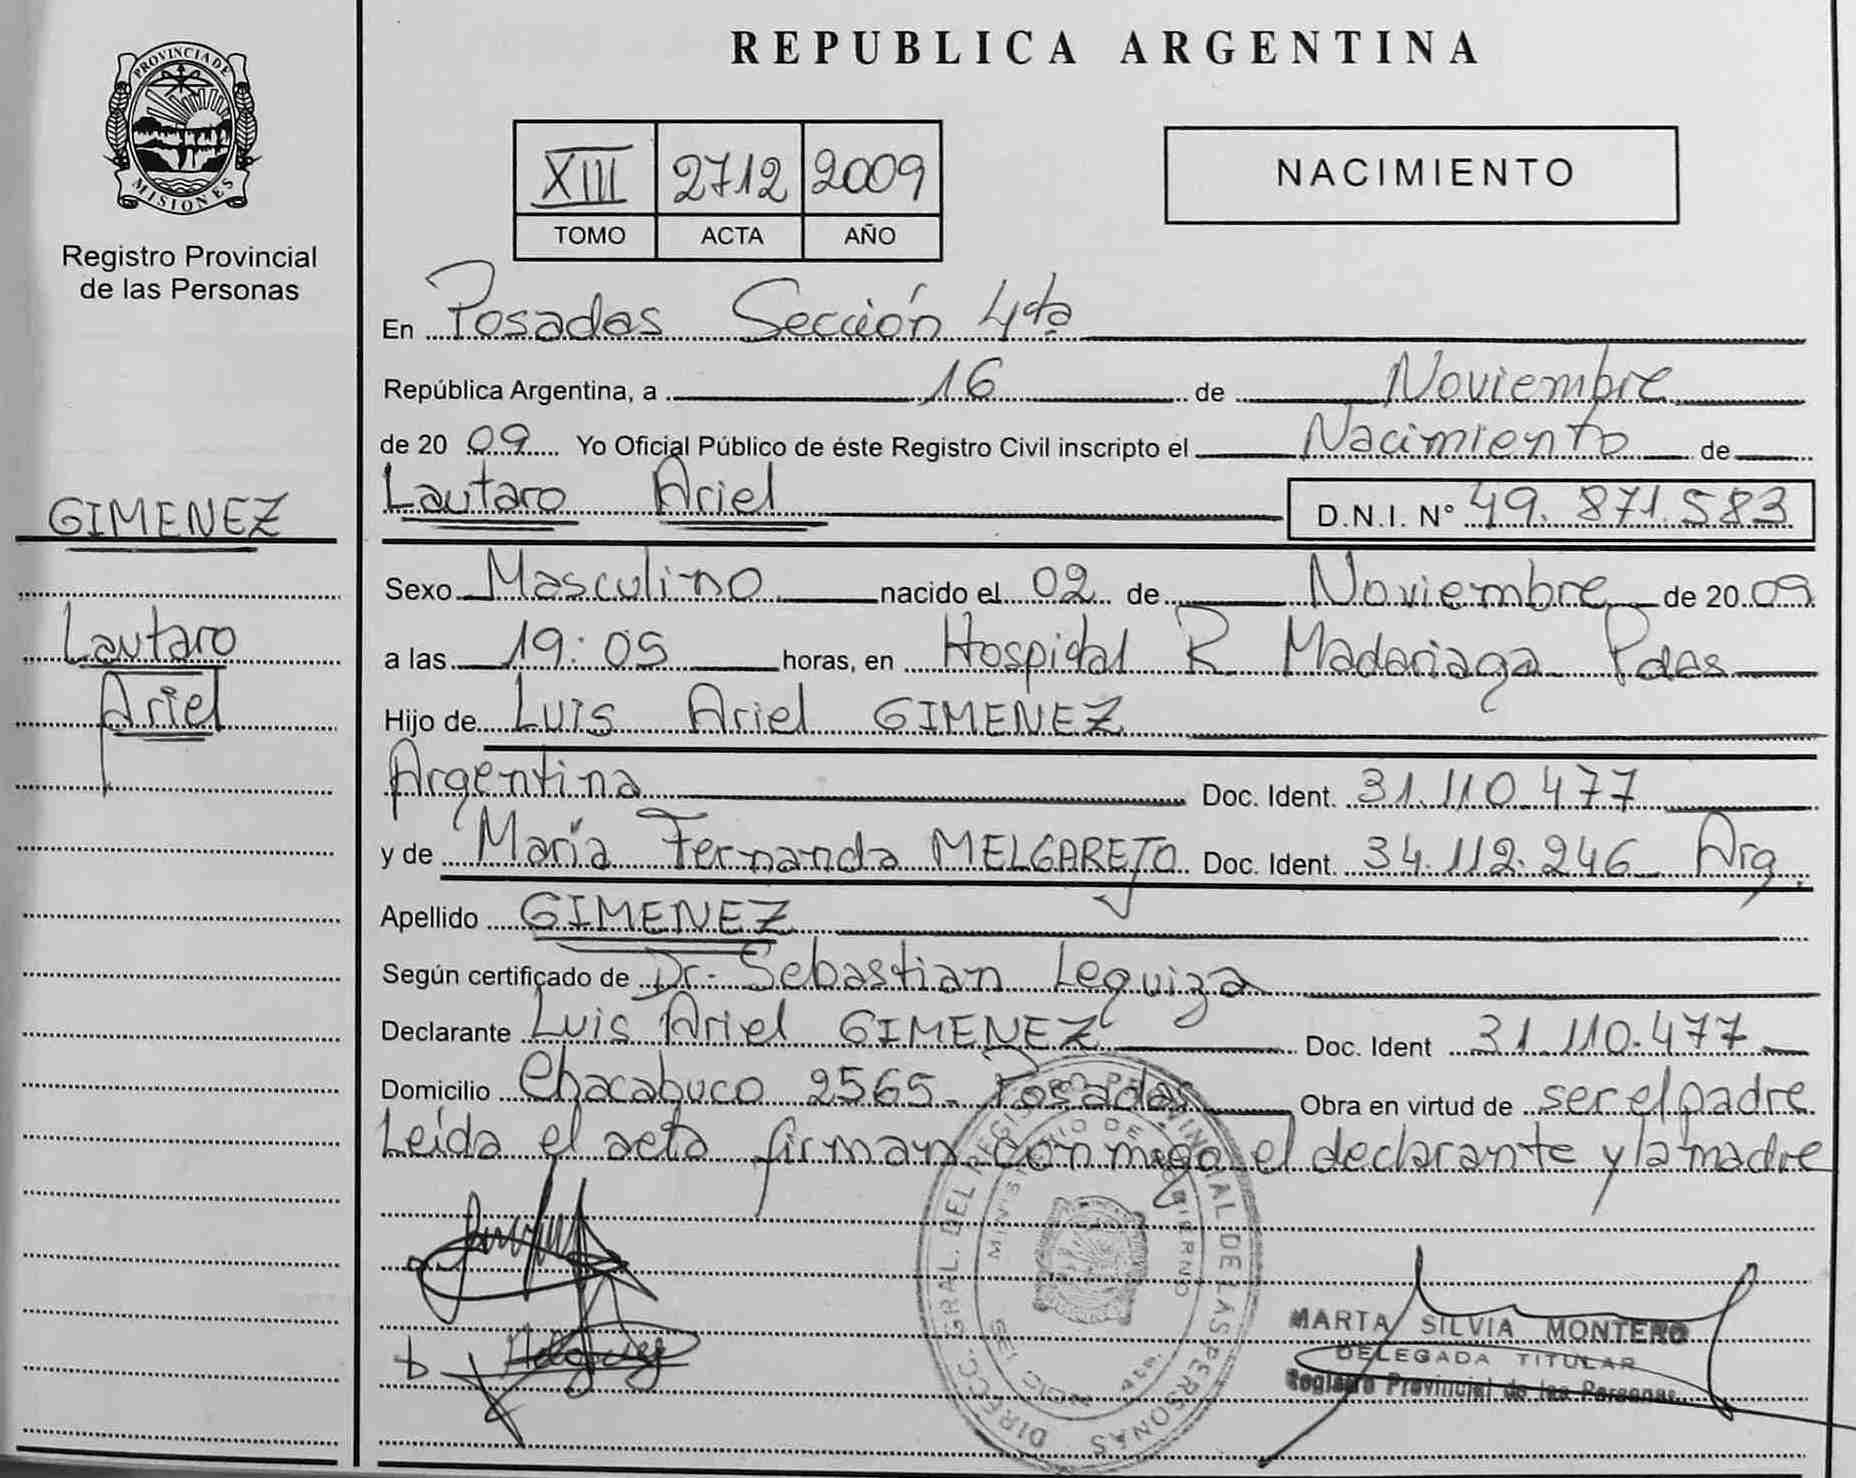 PROVINCIA DE
MISIONES
Registro Provincial
de las Personas
GIMENEZ
Lautaro
Ariel
REPUBLICA ARGENTINA
XIII 2712 2009
TOMO ACTA AÑO
NACIMIENTO
En Posadas Sección 4ta
República Argentina, a 16 de Noviembre
de 20 09 Yo Oficial Público de éste Registro Civil inscripto el Nacimiento de
Lautaro Ariel D.N.I. N° 49.871.583
Sexo Masculino nacido el 02 de Noviembre de 20 09
a las 19:05 horas, en Hospital R Madariaga Pdas
Hijo de Luis Ariel GIMENEZ
Argentina Doc. Ident. 31.110.477
y de María Fernanda MELGAREJO Doc. Ident. 34.112.246 Arg.
Apellido GIMENEZ
Según certificado de Dr. Sebastian Leguiza
Declarante Luis Ariel GIMENEZ Doc. Ident 31.110.477
Domicilio Chacabuco 2565 - Posadas Obra en virtud de ser el padre
Leída el acta firman conmigo el declarante y la madre
DIRECC. GRAL. DEL REGISTRO PROVINCIAL DE LAS PERSONAS
MINISTERIO DE GOBIERNO
MARTA SILVIA MONTERO
DELEGADA TITULAR
Registro Provincial de las Personas